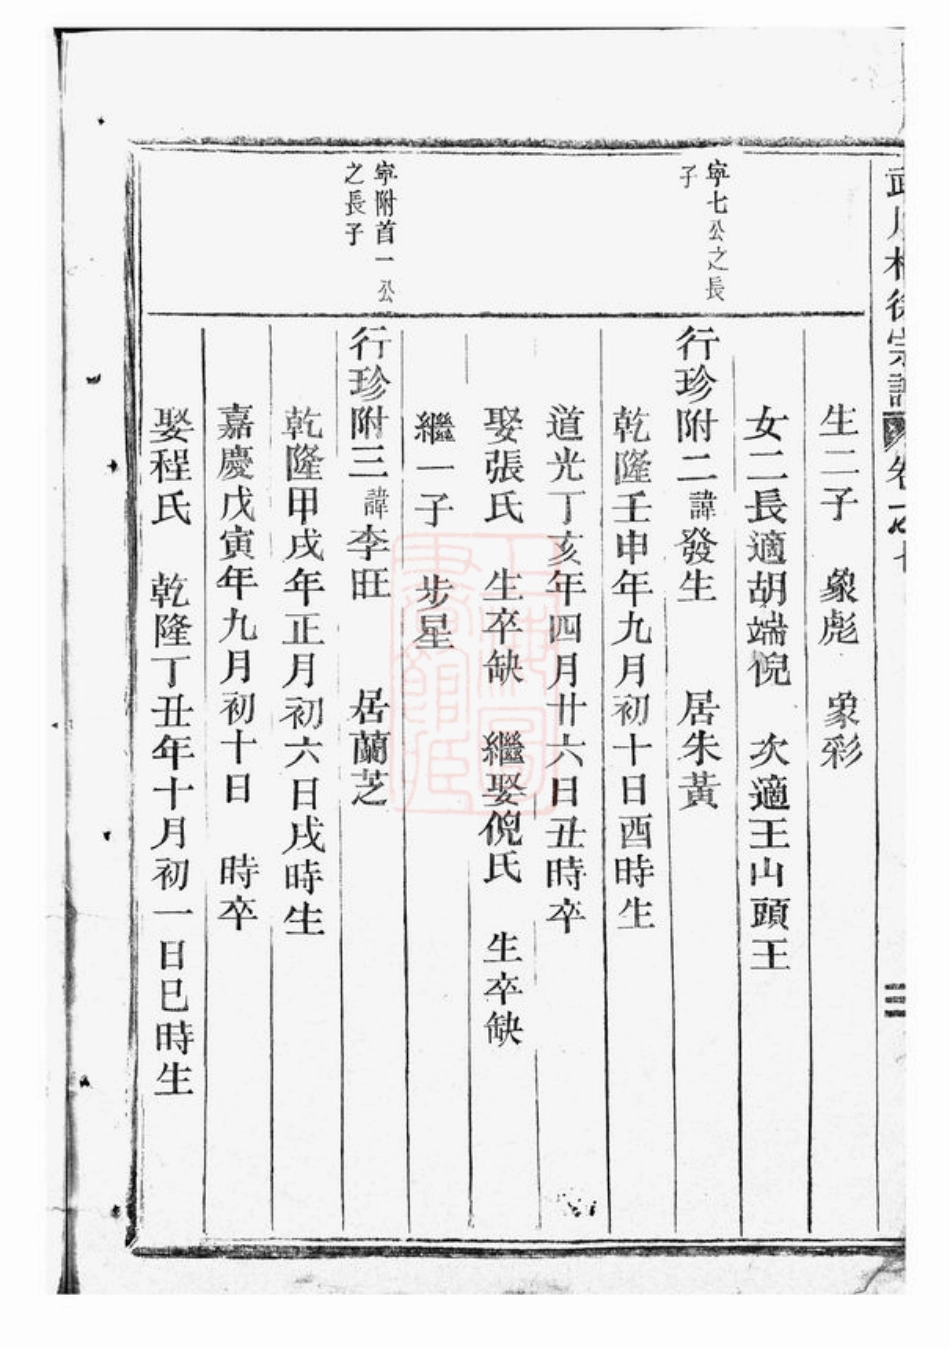 宗譜
生二子　象彪　象彩
女二長適胡端倪　次適王山頭王
寧七公之長
子
行珍附二諱發生　居朱黃
乾隆壬申年九月初十日酉時生
道光丁亥年四月廿六日丑時卒
娶張氏　生卒缺　繼娶倪氏　生卒缺
繼一子　步星
寧附首一公
之長子
行珍附三諱李旺　居蘭芝
乾隆甲戌年正月初六日戌時生
嘉慶戊寅年九月初十日　時卒
娶程氏　乾隆丁丑年十月初一日巳時生